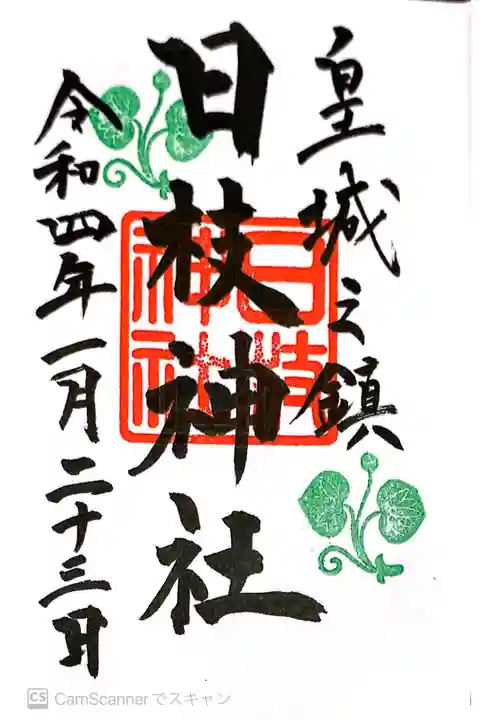 皇城之鎮
日枝神社
日枝神社
令和四年一月二十三日
CS CamScannerでスキャン